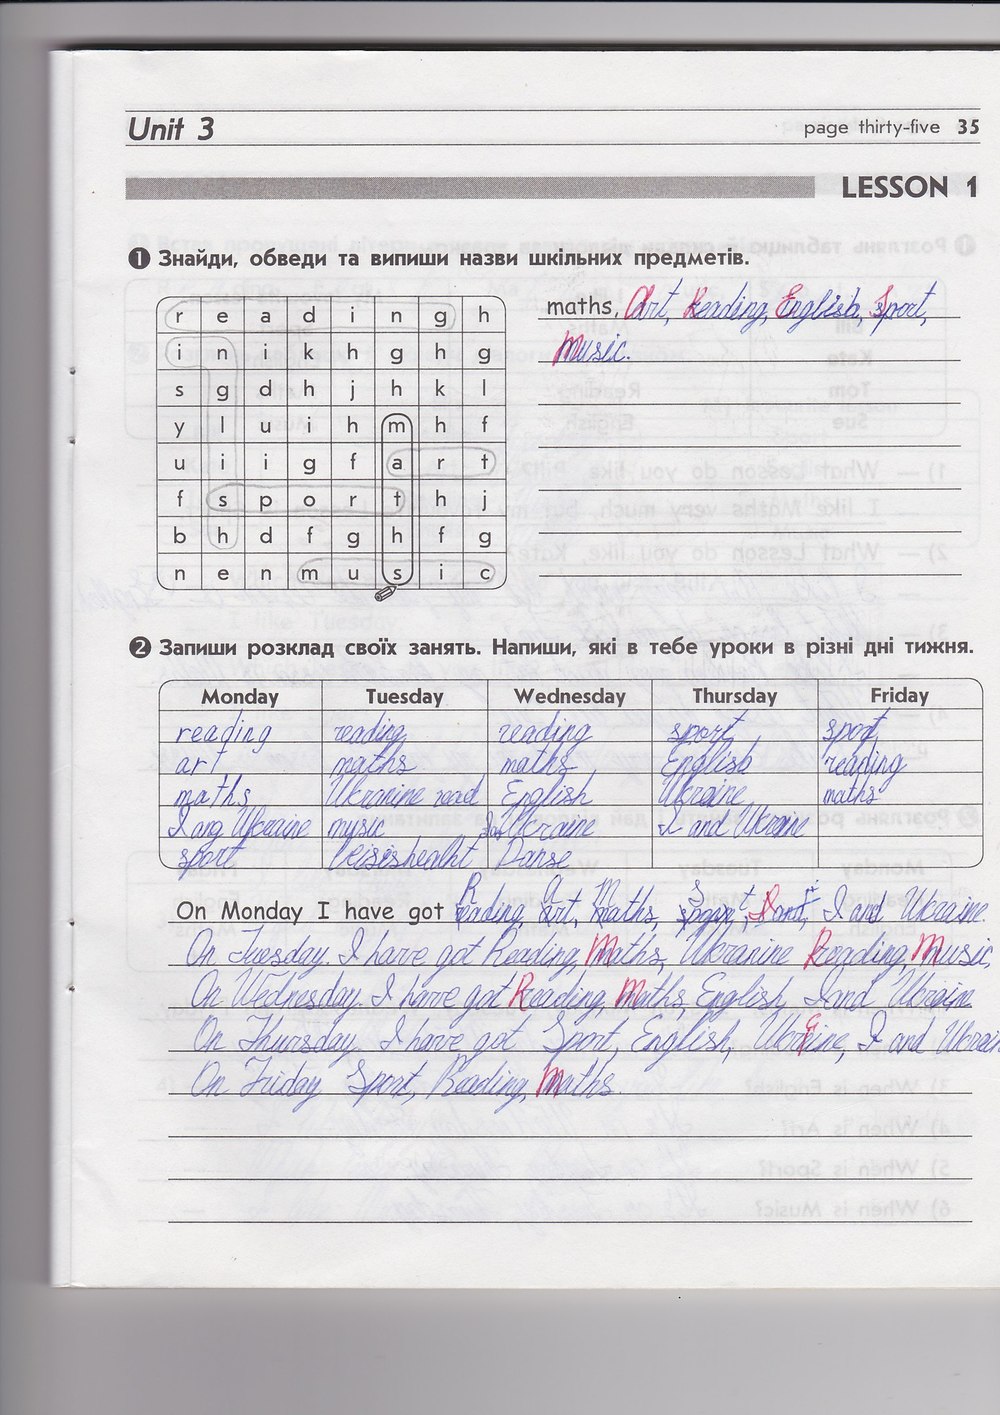 Unit 3
page thirty-five 35
LESSON 1
1 Знайди, обведи та випиши назви шкільних предметів.
r e a d i n g h
i n i k h g h g
s g d h j h k l
y l u i h m h f
u i i g f a r t
f s p o r t h j
b h d f g h f g
n e n m u s i c
maths, Art, Reading, English, Sport,
Music.
2 Запиши розклад своїх занять. Напиши, які в тебе уроки в різні дні тижня.
Monday Tuesday Wednesday Thursday Friday
reading reading reading sport sport
art maths maths English reading
maths Ukranine read English Ukraine maths
I ang Ukraine music Ukraine I and Ukraine
sport Danse
On Monday I have got Reading, Art, Maths, Sport, I and Ukraine.
On Tuesday. I have got Reading, Maths, Ukranine Reading, Music,
On Wednesday. I have got Reading, Maths, English, I and Ukraine
On Thursday. I have got Sport, English, Ukreine, I and Ukrain
On Friday Sport, Reading, Maths.